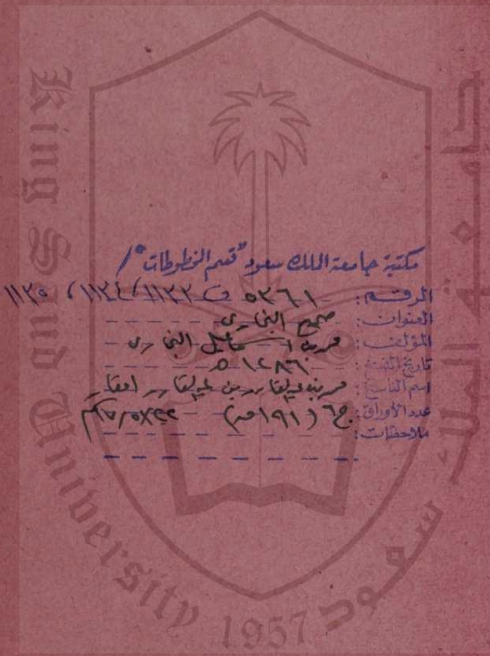 مكتبة جامعة الملك سعود "قسم المخطوطات"
الرقم: ٥٣٦١ ف ١١٢٣/ ١١٢٤/ ١١٢٥
العنوان: صحيح البخاري
المؤلف: محمد بن اسماعيل البخاري
تاريخ النسخ: ١٢٨٦ هـ
اسم الناسخ: محمد بن عبدالقادر بن عبدالقادر
عدد الأوراق: ج ٦ (١٩١ ص)
ملاحظات:
King Saud University 1957
جامعة الملك سعود